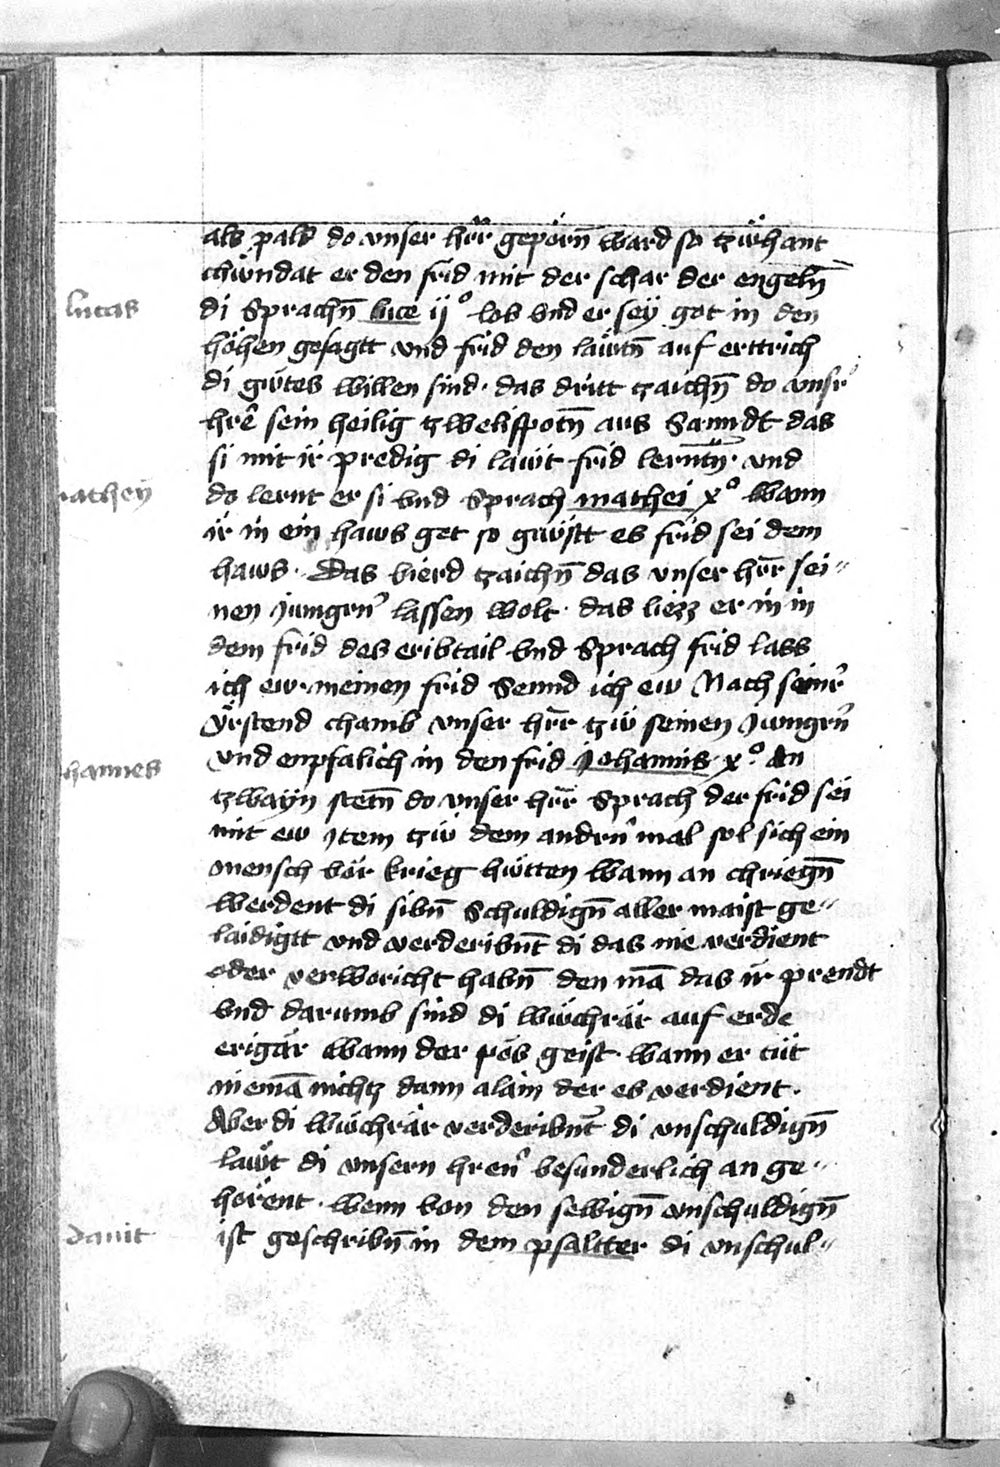 als pald do unser hrr̄ geporn̄ ward so tzwhant
chündat er den frid mit der schar der engeln̄
lucas
di sprachn̄ luce ij° lob und er sey got in den
höhen gesagtt und frid den läwtn̄ auf erttrich
di gütes willen sind · das dritt tzaichn̄ do unsr̕
hrē sein heilig tzwelifpotn̄ aus sanndt das
si mit ir predig di läwt frid lerntn̄ · und
mathey
do lernt er si und sprach mathei x° wann
ir in ein haws get so grüstt es frid sei dem
haws · Das vierd tzaichn̄ das unser hrr̄ sei〃
nen jungrn̕ lassen wolt · das liezz er in in
dem frid des eribtail und sprach frid lass
ich ew meinen frid sennd ich ew Nach seinr̕
ürstend chamb unser hrr̄ tzw seinen jungrn̕
hannes
und enpfalich in den frid johannis x° · An
tzwayn stetn̄ do unser hrr̄ sprach der frid sei
mit ew jtem tzw dem andrn̕ mal sol sich ein
mensch vor krieg hütten wann an chriegn̄
werdent di sibn̄ schuldign̄ aller maist ge〃
laidigtt und verderibnt̄ di das nie verdient
oder verworicht habn̄ den mā das ir prendt
und darumb sind di wüchrär auf erde
eriger wann der pös geist · wann er tüt
niemā nichtz dann alain der es verdient ·
Aber di wüchrär verderibnt̄ di unschuldign̄
läwt di unsern hren̕ besunderlich an ge〃
hörent · wenn von den selbign̄ unschuldign̄
dauit
ist geschribn̄ in dem psaltter di unschul〃